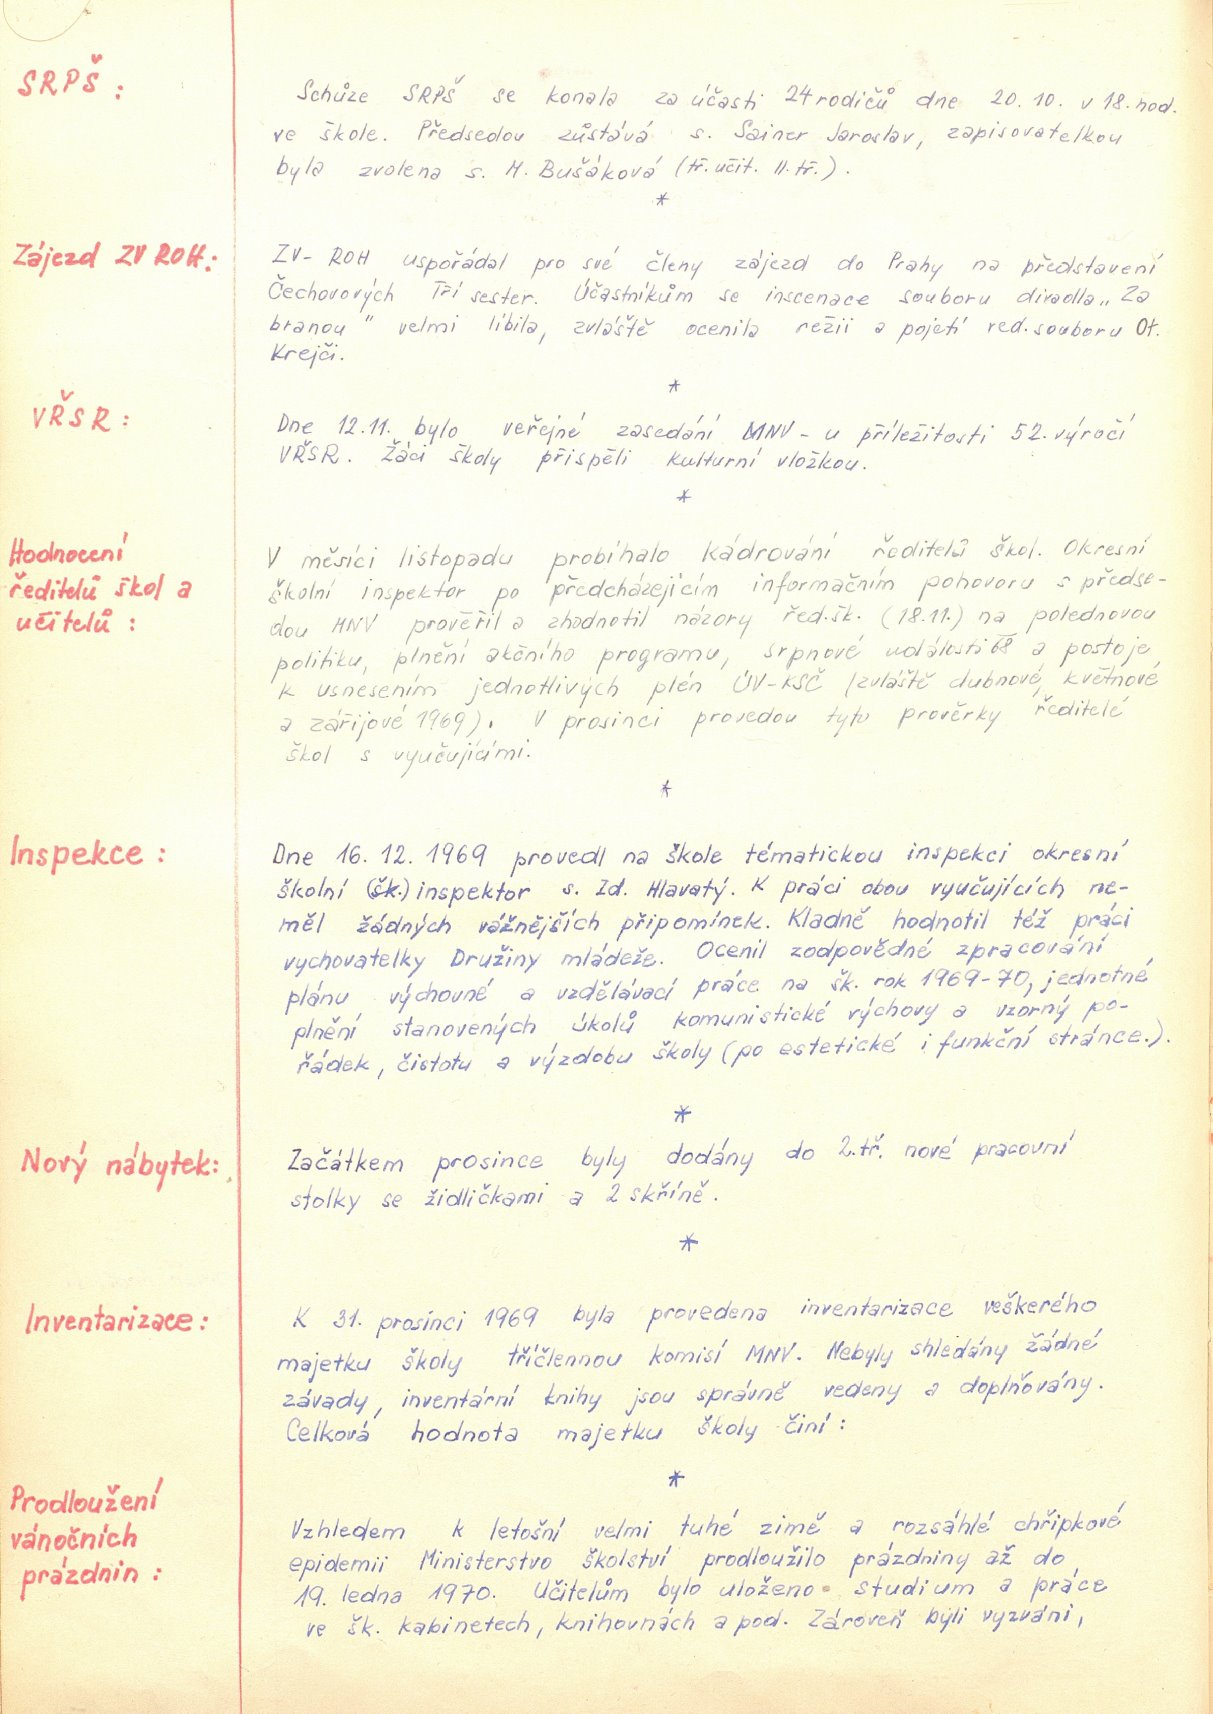 SRPŠ :
Schůze SRPŠ se konala za účasti 24 rodičů dne 20. 10. v 18. hod.
ve škole. Předsedou zůstává s. Sainer Jaroslav, zapisovatelkou
byla zvolena s. M. Bušáková (tř. učit. II. tř.).
*
Zájezd ZV ROH:
ZV - ROH uspořádal pro své členy zájezd do Prahy na představení
Čechovových Tří sester. Účastníkům se inscenace souboru divadla „Za
branou" velmi líbila, zvláště ocenila režii a pojetí ved. souboru Ot.
Krejči.
*
VŘSR :
Dne 12.11. bylo veřejné zasedání MNV - u příležitosti 52. výročí
VŘSR. Žáci školy přispěli kulturní vložkou.
*
Hodnocení
ředitelů škol a
učitelů :
V měsíci listopadu probíhalo kádrování ředitelů škol. Okresní
školní inspektor po předcházejícím informačním pohovoru s předse-
dou MNV prověřil a zhodnotil názory řed. šk. (18.11.) na polednovou
politiku, plnění akčního programu, srpnové události 68 a postoje
k usnesením jednotlivých plén ÚV-KSČ (zvláště dubnové, květnové
a zářijové 1969). V prosinci provedou tyto prověrky ředitelé
škol s vyučujícími.
*
Inspekce :
Dne 16. 12. 1969 provedl na škole tématickou inspekci okresní
školní (šk.) inspektor s. Zd. Hlavatý. K práci obou vyučujících ne-
měl žádných vážnějších připomínek. Kladně hodnotil též práci
vychovatelky Družiny mládeže. Ocenil zodpovědné zpracování
plánu výchovné a vzdělávací práce na šk. rok 1969-70, jednotné
plnění stanovených úkolů komunistické výchovy a vzorný po-
řádek, čistotu a výzdobu školy (po estetické i funkční stránce.).
*
Nový nábytek:
Začátkem prosince byly dodány do 2. tř. nové pracovní
stolky se židličkami a 2 skříně.
*
Inventarizace :
K 31. prosinci 1969 byla provedena inventarizace veškerého
majetku školy tříčlennou komisí MNV. Nebyly shledány žádné
závady, inventární knihy jsou správně vedeny a doplňovány.
Celková hodnota majetku školy činí :
*
Prodloužení
vánočních
prázdnin :
Vzhledem k letošní velmi tuhé zimě a rozsáhlé chřipkové
epidemii Ministerstvo školství prodloužilo prázdniny až do
19. ledna 1970. Učitelům bylo uloženo studium a práce
ve šk. kabinetech, knihovnách a pod. Zároveň byli vyzváni,